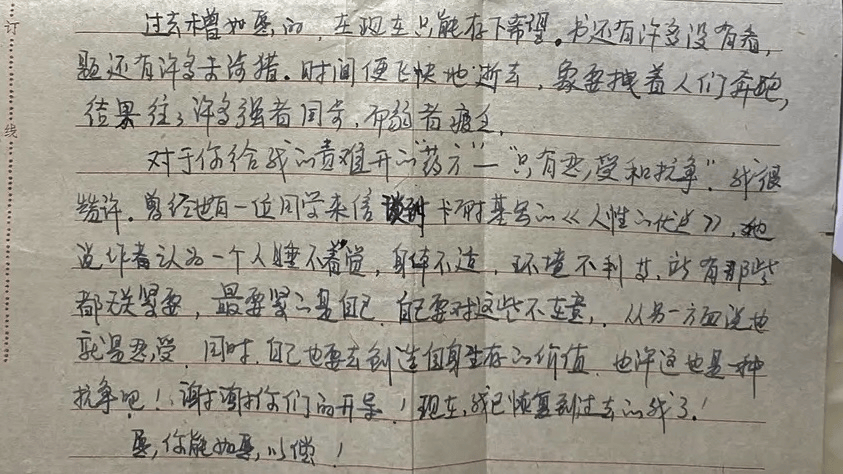 订
线
过去未曾如愿的，在现在只能存下希望。书还有许多没有看，
题还有许多未涂猎。时间便飞快地逝去，象要拽着人们奔跑，
结果往々许多强者同步，而弱者疲乏。
对于你给我的责难开的"药方"—"只有忍受和抗争"。我很
赞许。曾经也有一位同学来信谈到卡耐基写的《人性的优点》，他
说作者认为一个人睡不着觉，身体不适，环境不利等，所有那些
都无关紧要，最要紧的是自己，自己要对这些不在意，从另一方面说也
就是忍受，同时，自己也要去创造自身生存的价值，也许这也是一种
抗争吧！谢谢你们的开导！现在，我已恢复到过去的我了！
愿，你能如愿，以偿！